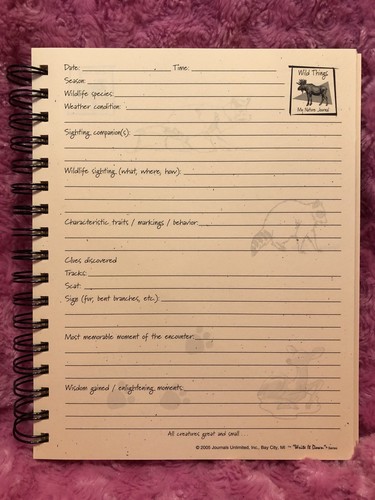 Date: Time:
Wild Things
Season:
Wildlife species:
Weather condition:
My Nature Journal
Sighting companion(s):
Wildlife sighting (what, where, how):
Characteristic traits / markings / behavior:
Clues discovered
Tracks:
Scat:
Sign (fur, bent branches, etc.):
Most memorable moment of the encounter:
Wisdom gained / enlightening moments:
All creatures great and small . . .
© 2005 Journals Unlimited, Inc., Bay City, MI ~ "Write It Down!" series